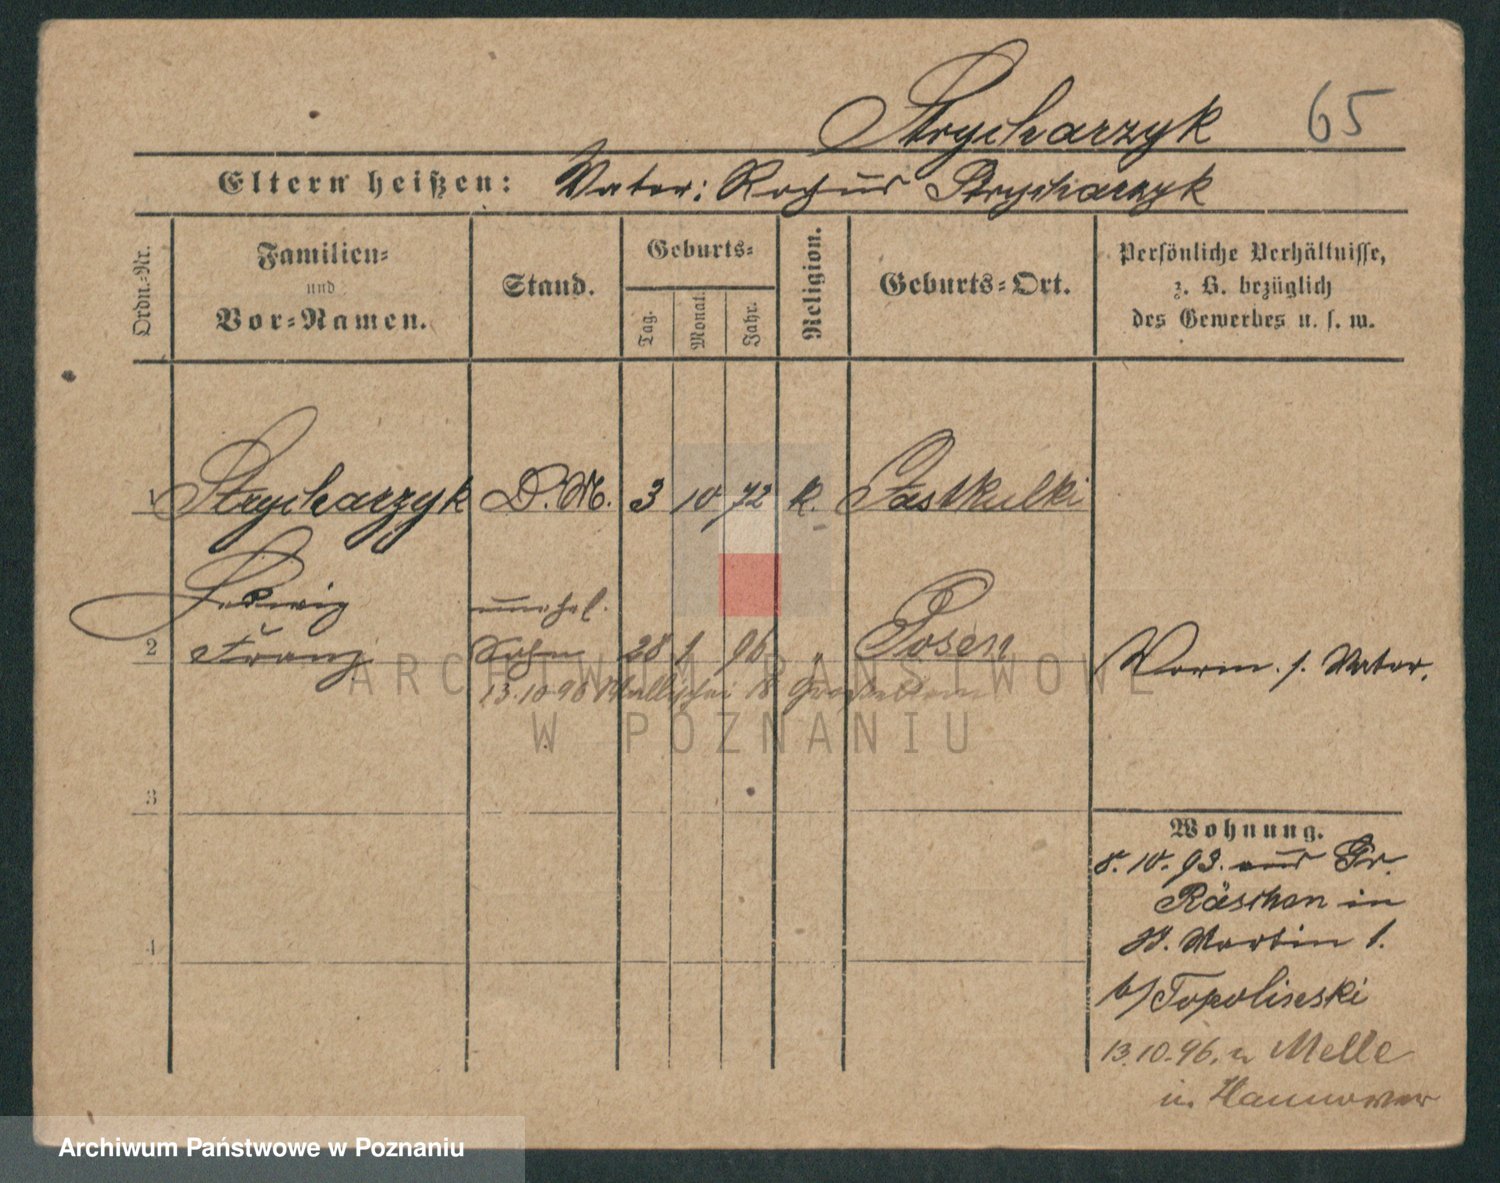 Strycharzyk 65
Eltern heißen: Vater: Rochus Strycharzyk
Ordn.-Nr.
Familien-
und
Vor-Namen.
Stand.
Geburts-
Tag.
Monat.
Jahr.
Religion.
Geburts-Ort.
Persönliche Verhältnisse,
z. B. bezüglich
des Gewerbes u. s. w.
1 Strycharzyk D. M. 3 10 72 k.
Hedwig unehel.
2 Franz Sohn 28 1 96 " Posen
Vorm. s. Vater.
13.10.96 18
3
4
Wohnung.
8.10.93. aus Gr.
Räschen in
St. Martin 1.
b/
13.10.96. n Melle
in Hannover
ARCHIWUM PAŃSTWOWE
W POZNANIU
Archiwum Państwowe w Poznaniu